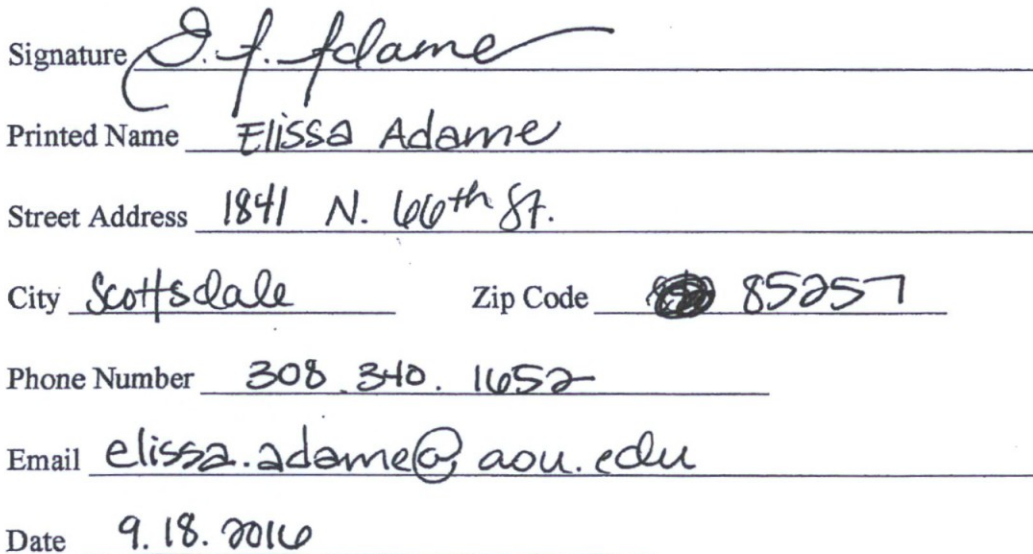 Signature E. A. Adame
Printed Name Elissa Adame
Street Address 1841 N. 66th St.
City Scottsdale Zip Code 85257
Phone Number 308.340.1652
Email elissa.adame@aou.edu
Date 9.18.2016